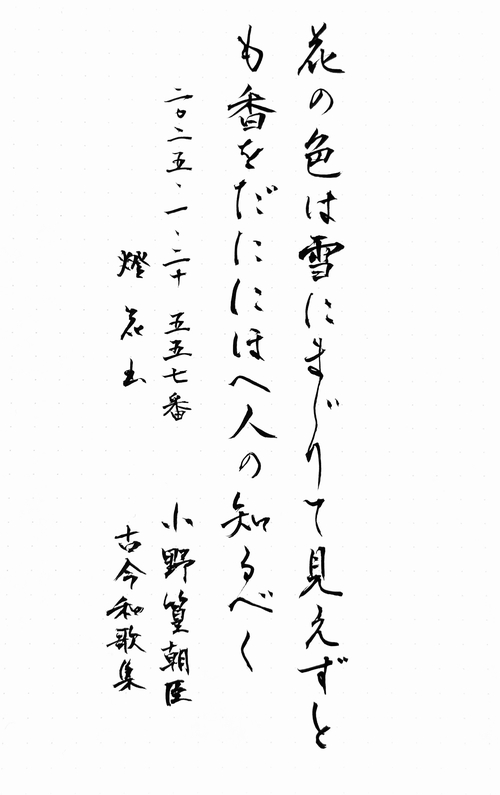 花の色は雪にまじりて見えずと
も香をだににほへ人の知るべく
二〇二五、一、二十 五五七番
小野篁朝臣
燈花
古今和歌集